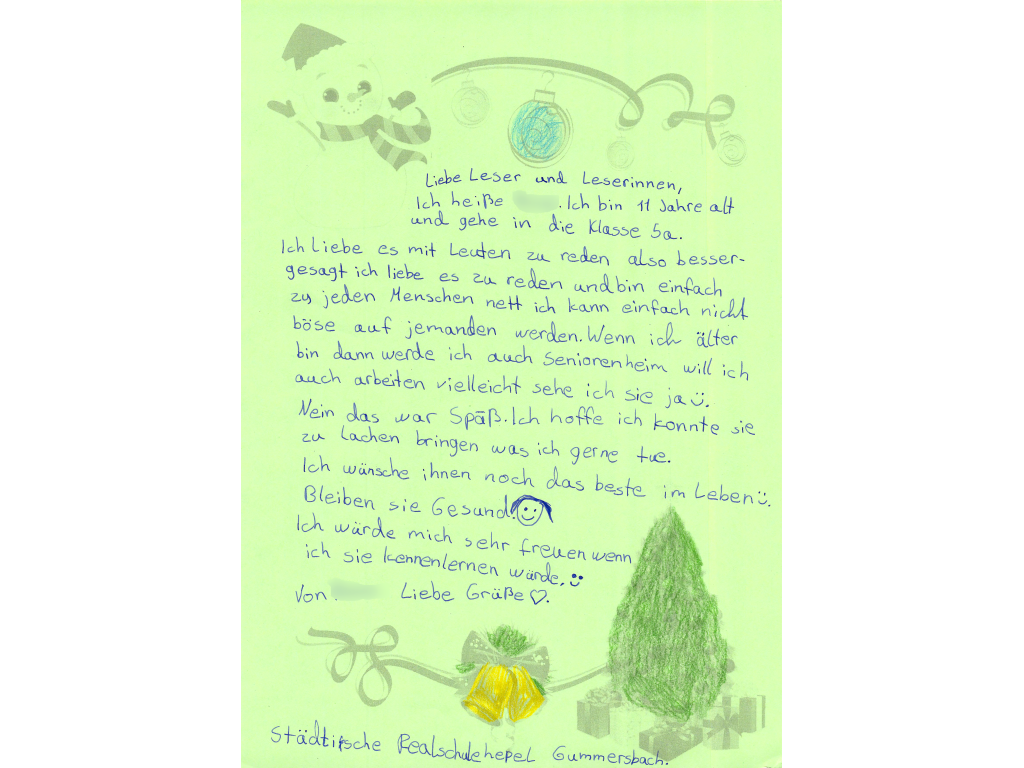 Liebe Leser und Leserinnen,
Ich heiße . Ich bin 11 Jahre alt
und gehe in die Klasse 5a.
Ich Liebe es mit Leuten zu reden also besser-
gesagt ich liebe es zu reden und bin einfach
zu jeden Menschen nett ich kann einfach nicht
böse auf jemanden werden. Wenn ich älter
bin dann werde ich auch Seniorenheim will ich
auch arbeiten vielleicht sehe ich sie ja :).
Nein das war Späß. Ich hoffe ich konnte sie
zu lachen bringen was ich gerne tue.
Ich wänsche ihnen noch das beste im Leben :).
Bleiben sie Gesund!
Ich wärde mich sehr freuen wenn
ich sie kennenlernen wärde. :)
Von Liebe Gräße ♡.
Städtische Realschule Gummersbach.